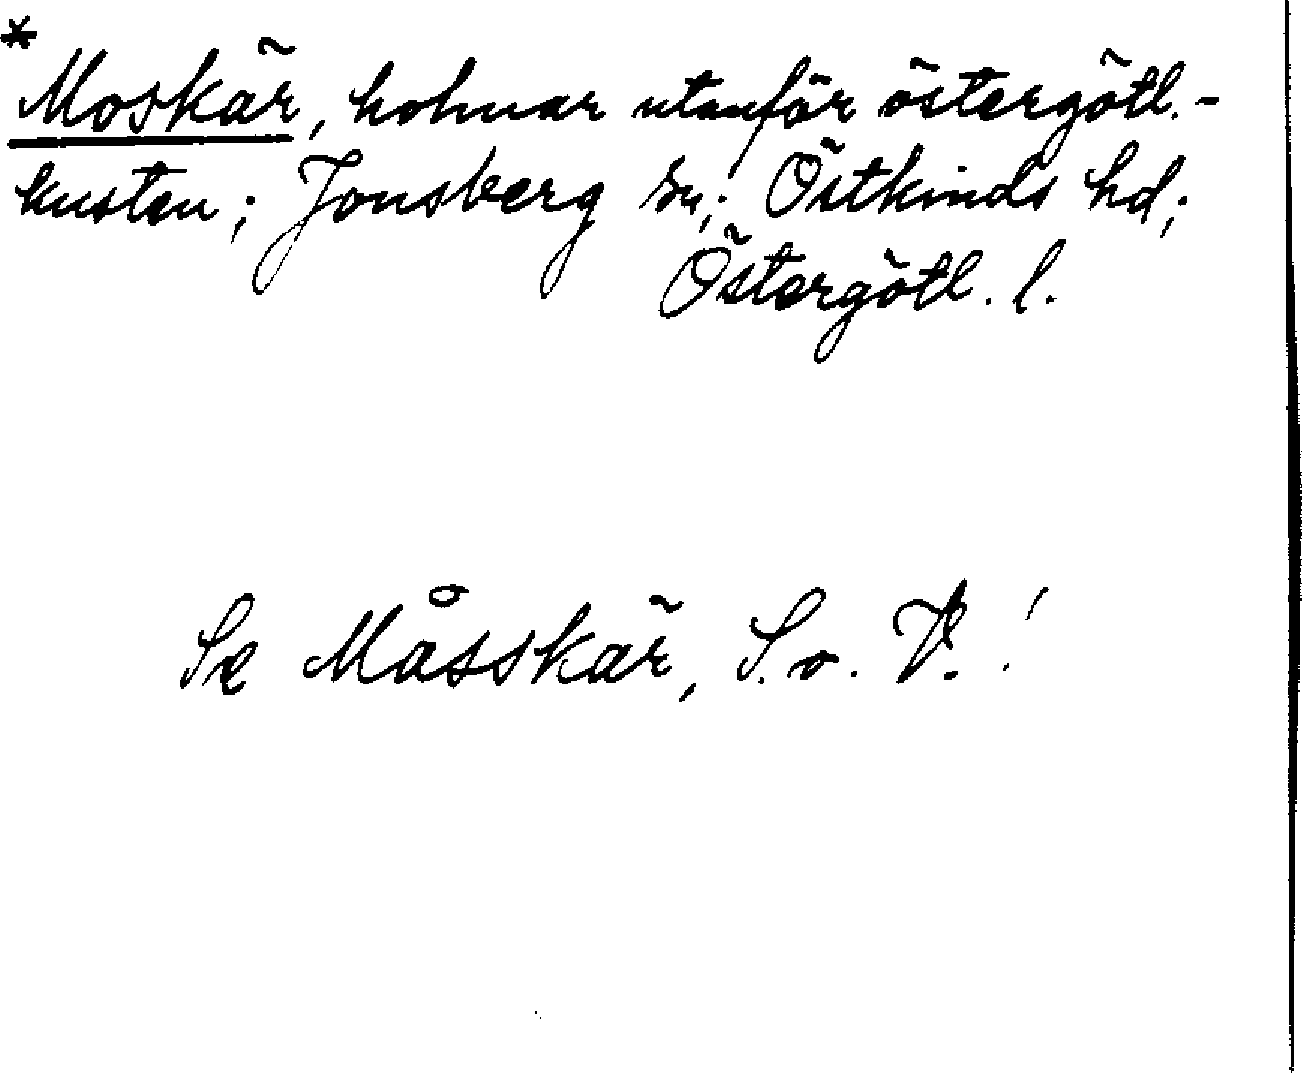 *
Moskär, holmar utanför östergötl.-
kusten; Jonsberg sn; Östkinds hd;
Östergötl. l.
Se Måsskär, S. o. V. !